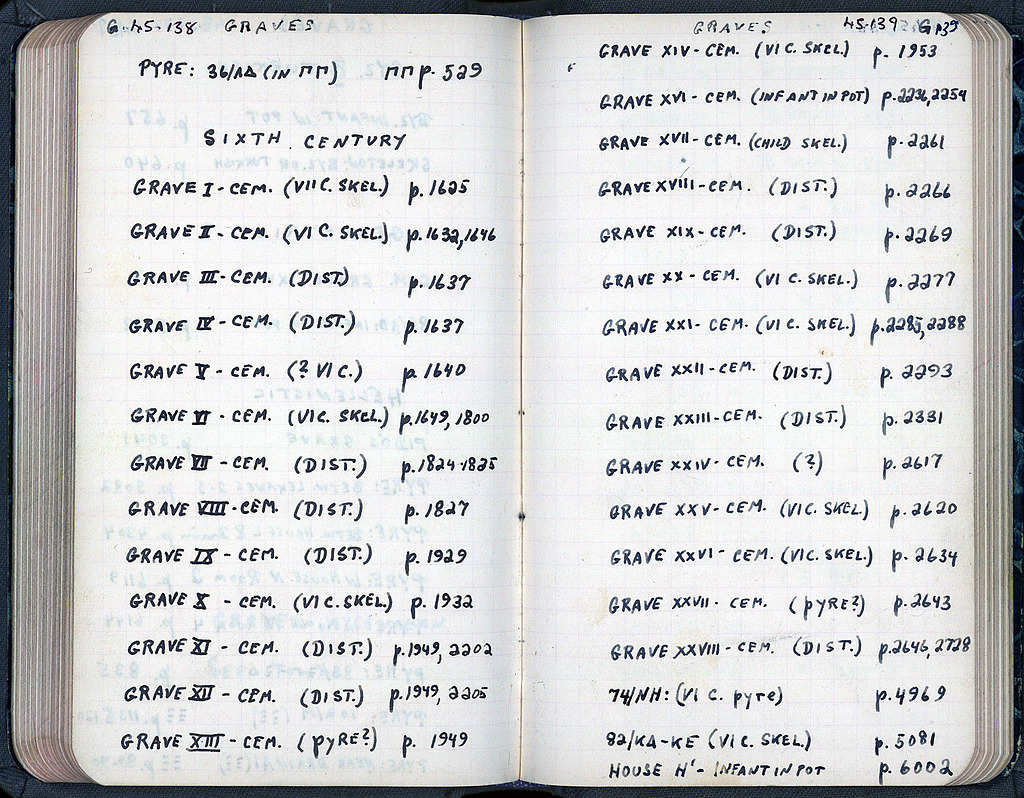 G-45-138 GRAVES
PYRE: 36/ΛΔ (IN ΠΠ) ΠΠ p. 529
SIXTH CENTURY
GRAVE I - CEM. (VII C. SKEL.) p. 1625
GRAVE II - CEM. (VI C. SKEL.) p. 1632, 1646
GRAVE III - CEM. (DIST.) p. 1637
GRAVE IV - CEM. (DIST.) p. 1637
GRAVE V - CEM. (? VI C.) p. 1640
GRAVE VI - CEM. (VI C. SKEL.) p. 1649, 1800
GRAVE VII - CEM. (DIST.) p. 1824-1825
GRAVE VIII - CEM. (DIST.) p. 1827
GRAVE IX - CEM. (DIST.) p. 1929
GRAVE X - CEM. (VI C. SKEL.) p. 1932
GRAVE XI - CEM. (DIST.) p. 1949, 2202
GRAVE XII - CEM. (DIST.) p. 1949, 2205
GRAVE XIII - CEM. (PYRE?) p. 1949
GRAVES 45-139
GRAVE XIV - CEM. (VI C. SKEL.) p. 1953
GRAVE XVI - CEM. (INFANT IN POT) p. 2236, 2254
GRAVE XVII - CEM. (CHILD SKEL.) p. 2261
GRAVE XVIII - CEM. (DIST.) p. 2266
GRAVE XIX - CEM. (DIST.) p. 2269
GRAVE XX - CEM. (VI C. SKEL.) p. 2277
GRAVE XXI - CEM. (VI C. SKEL.) p. 2285, 2288
GRAVE XXII - CEM. (DIST.) p. 2293
GRAVE XXIII - CEM. (DIST.) p. 2331
GRAVE XXIV - CEM. (?) p. 2617
GRAVE XXV - CEM. (VI C. SKEL.) p. 2620
GRAVE XXVI - CEM. (VI C. SKEL.) p. 2634
GRAVE XXVII - CEM. (PYRE?) p. 2643
GRAVE XXVIII - CEM. (DIST.) p. 2646, 2728
74/NH: (VI C. pyre) p. 4969
82/ΚΔ-ΚΕ (VI C. SKEL.) p. 5081
HOUSE H' - INFANT IN POT p. 6002